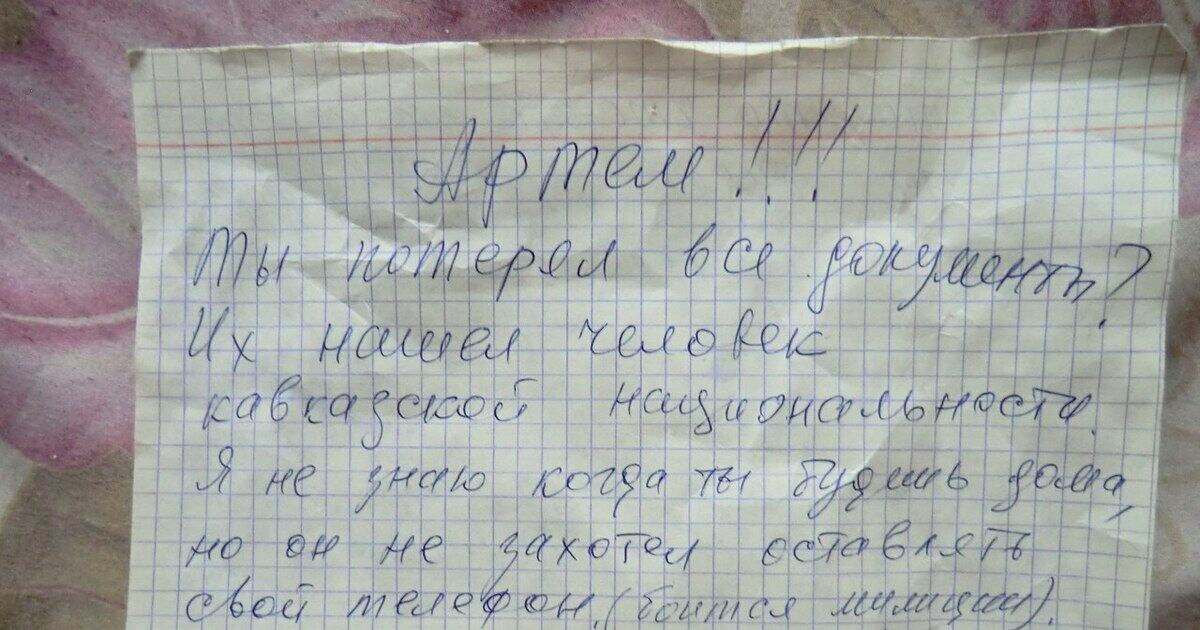 Артем!!!
Ты потерял все документы?
Их нашел человек
кавказской национальности.
Я не знаю когда ты будешь дома,
но он не захотел оставлять
свой телефон. (боится милиции).